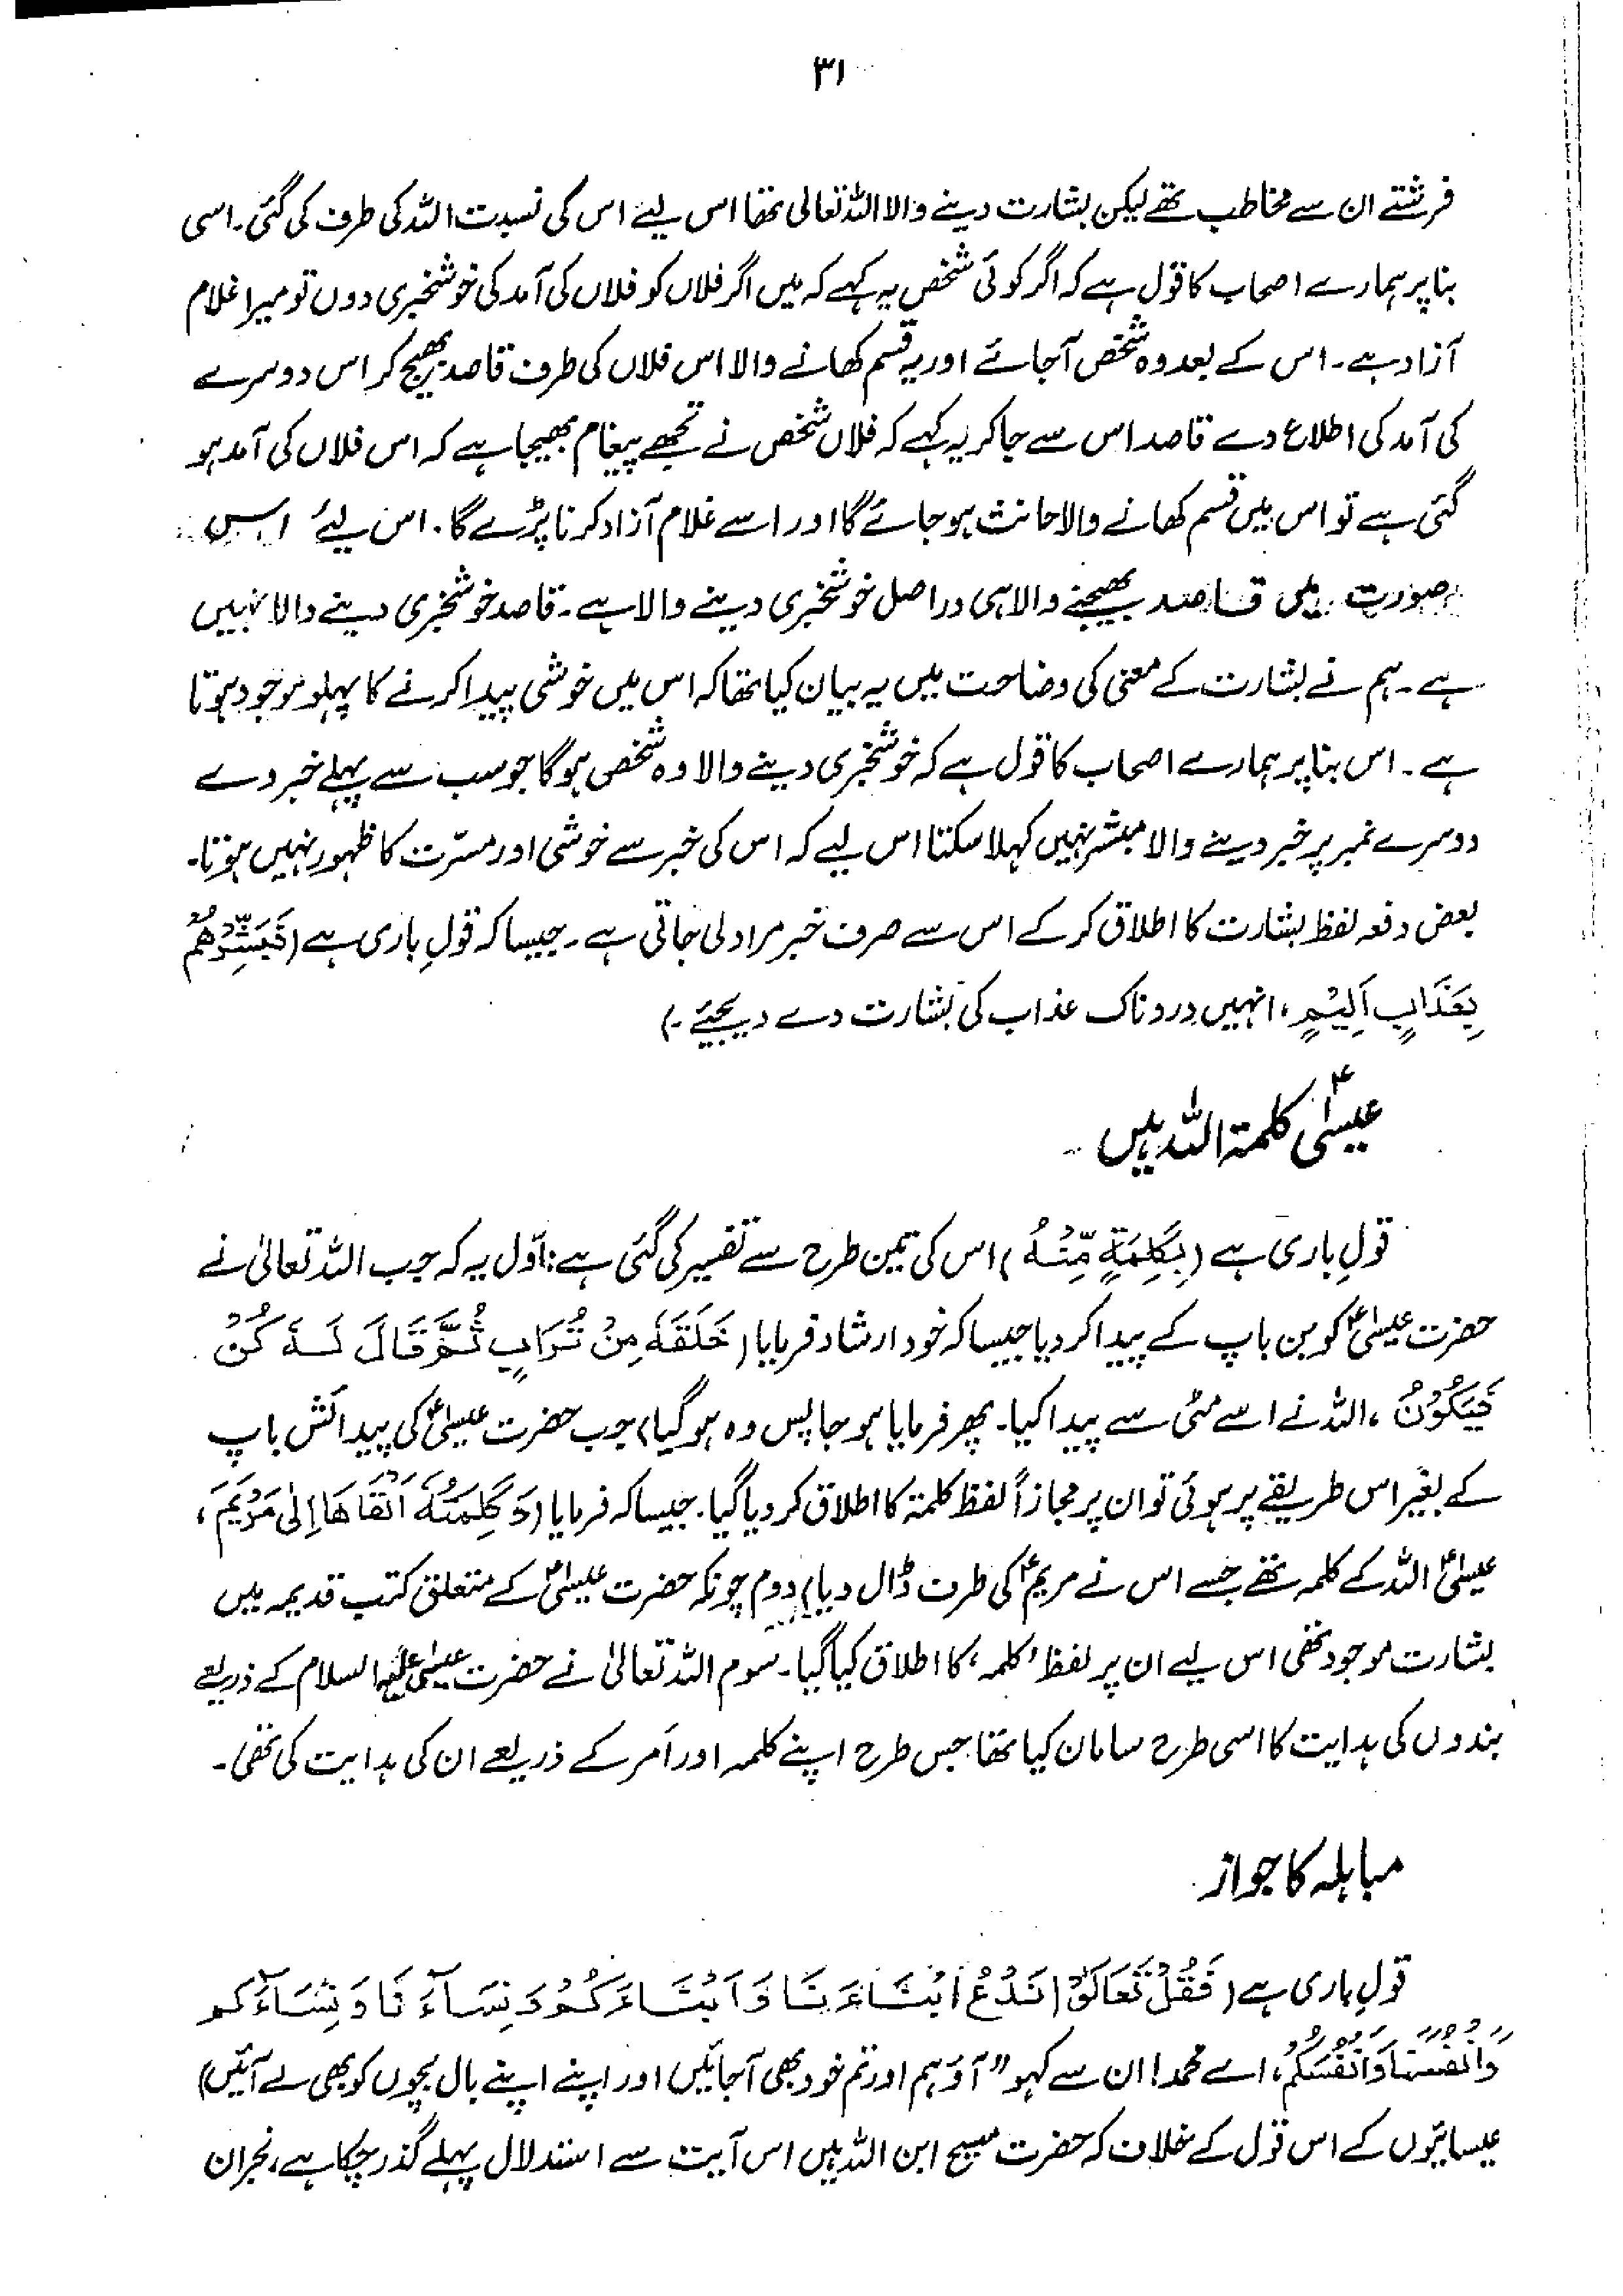 ۳۱
فرشتے ان سے مخاطب تھے لیکن بشارت دینے والا اللہ تعالیٰ تھا اس لیے اس کی نسبت اللہ کی طرف کی گئی۔ اسی
بنا پر ہمارے اصحاب کا قول ہے کہ اگر کوئی شخص یہ کہے کہ میں اگر فلاں کو فلاں کی آمد کی خوشخبری دوں تو میرا غلام
آزاد ہے۔ اس کے بعد وہ شخص آجائے اور یہ قسم کھانے والا اس فلاں کی طرف قاصد بھیج کر اس دوسرے
کی آمد کی اطلاع دے قاصد اس سے جا کر یہ کہے کہ فلاں شخص نے تجھے پیغام بھیجا ہے کہ اس فلاں کی آمد ہو
گئی ہے تو اس میں قسم کھانے والا حانث ہو جائے گا اور اسے غلام آزاد کرنا پڑے گا۔ اس لیے اس
صورت میں قاصد بھیجنے والا ہی دراصل خوشخبری دینے والا ہے۔ قاصد خوشخبری دینے والا نہیں
ہے۔ ہم نے بشارت کے معنی کی وضاحت میں یہ بیان کیا تھا کہ اس میں خوشی پیدا کرنے کا پہلو موجود ہوتا
ہے۔ اس بنا پر ہمارے اصحاب کا قول ہے کہ خوشخبری دینے والا وہ شخص ہوگا جو سب سے پہلے خبر دے
دوسرے نمبر پر خبر دینے والا مبشر نہیں کہلا سکتا اس لیے کہ اس کی خبر سے خوشی اور مسرّت کا ظہور نہیں ہوتا۔
بعض دفعہ لفظ بشارت کا اطلاق کر کے اس سے صرف خبر مراد لی جاتی ہے۔ جیسا کہ قولِ باری ہے (فَبَشِّرْهُمْ
بِعَذَابٍ اَلِيْمٍ، انہیں دردناک عذاب کی بشارت دے دیجئے۔)
عیسیٰؑ کلمۃ اللہ ہیں
قولِ باری ہے (بِكَلِمَةٍ مِّنْهُ) اس کی تین طرح سے تفسیر کی گئی ہے: اوّل یہ کہ جب اللہ تعالیٰ نے
حضرت عیسیٰؑ کو بن باپ کے پیدا کر دیا جیسا کہ خود ارشاد فرمایا (خَلَقَهٗ مِنْ تُرَابٍ ثُمَّ قَالَ لَهٗ كُنْ
فَيَكُوْنُ، اللہ نے اسے مٹی سے پیدا کیا۔ پھر فرمایا ہو جا پس وہ ہو گیا) جب حضرت عیسیٰؑ کی پیدائش باپ
کے بغیر اس طریقے پر ہوئی تو ان پر مجازاً لفظ کلمۃ کا اطلاق کر دیا گیا۔ جیسا کہ فرمایا (وَكَلِمَتُهٗ اَلْقَاهَا اِلٰى مَرْيَمَ،
عیسیٰؑ اللہ کے کلمہ تھے جسے اس نے مریمؑ کی طرف ڈال دیا) دوم چونکہ حضرت عیسیٰؑ کے متعلق کتب قدیمہ میں
بشارت موجود تھی اس لیے ان پر لفظ 'کلمہ' کا اطلاق کیا گیا۔ سوم اللہ تعالیٰ نے حضرت عیسیٰ علیہ السلام کے ذریعے
بندوں کی ہدایت کا اسی طرح سامان کیا تھا جس طرح اپنے کلمہ اور امر کے ذریعے ان کی ہدایت کی تھی۔
مباہلہ کا جواز
قولِ باری ہے (فَقُلْ تَعَالَوْا نَدْعُ اَبْنَاءَنَا وَاَبْنَاءَكُمْ وَنِسَآءَنَا وَنِسَآءَكُم
وَاَنْفُسَنَا وَاَنْفُسَكُمْ، اے محمد! ان سے کہو "آؤ ہم اور تم خود بھی آجائیں اور اپنے اپنے بال بچوں کو بھی لے آئیں)
عیسائیوں کے اس قول کے خلاف کہ حضرت مسیح ابن اللہ ہیں اس آیت سے استدلال پہلے گذر چکا ہے، نجران